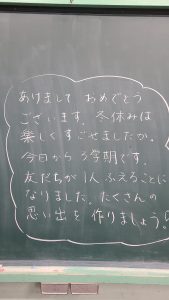 あけまして おめでとう
ございます。冬休みは
楽しくすごせましたか。
今日から3学期です。
友だちが1人ふえることに
なりました。たくさんの
思い出を作りましょう。